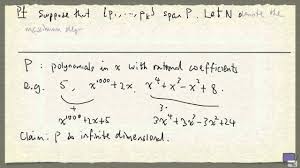 Pf Suppose that {p₁, ..., pₖ} span P. Let N denote the
maximum deg
P : polynomials in x with rational coefficients
e.g. 5, x¹⁰⁰⁰ + 2x, x⁴ + x³ - x² + 8.
+ 3.
x¹⁰⁰⁰ + 2x + 5 3x⁴ + 3x³ - 3x² + 24
Claim: P is infinite dimensional.